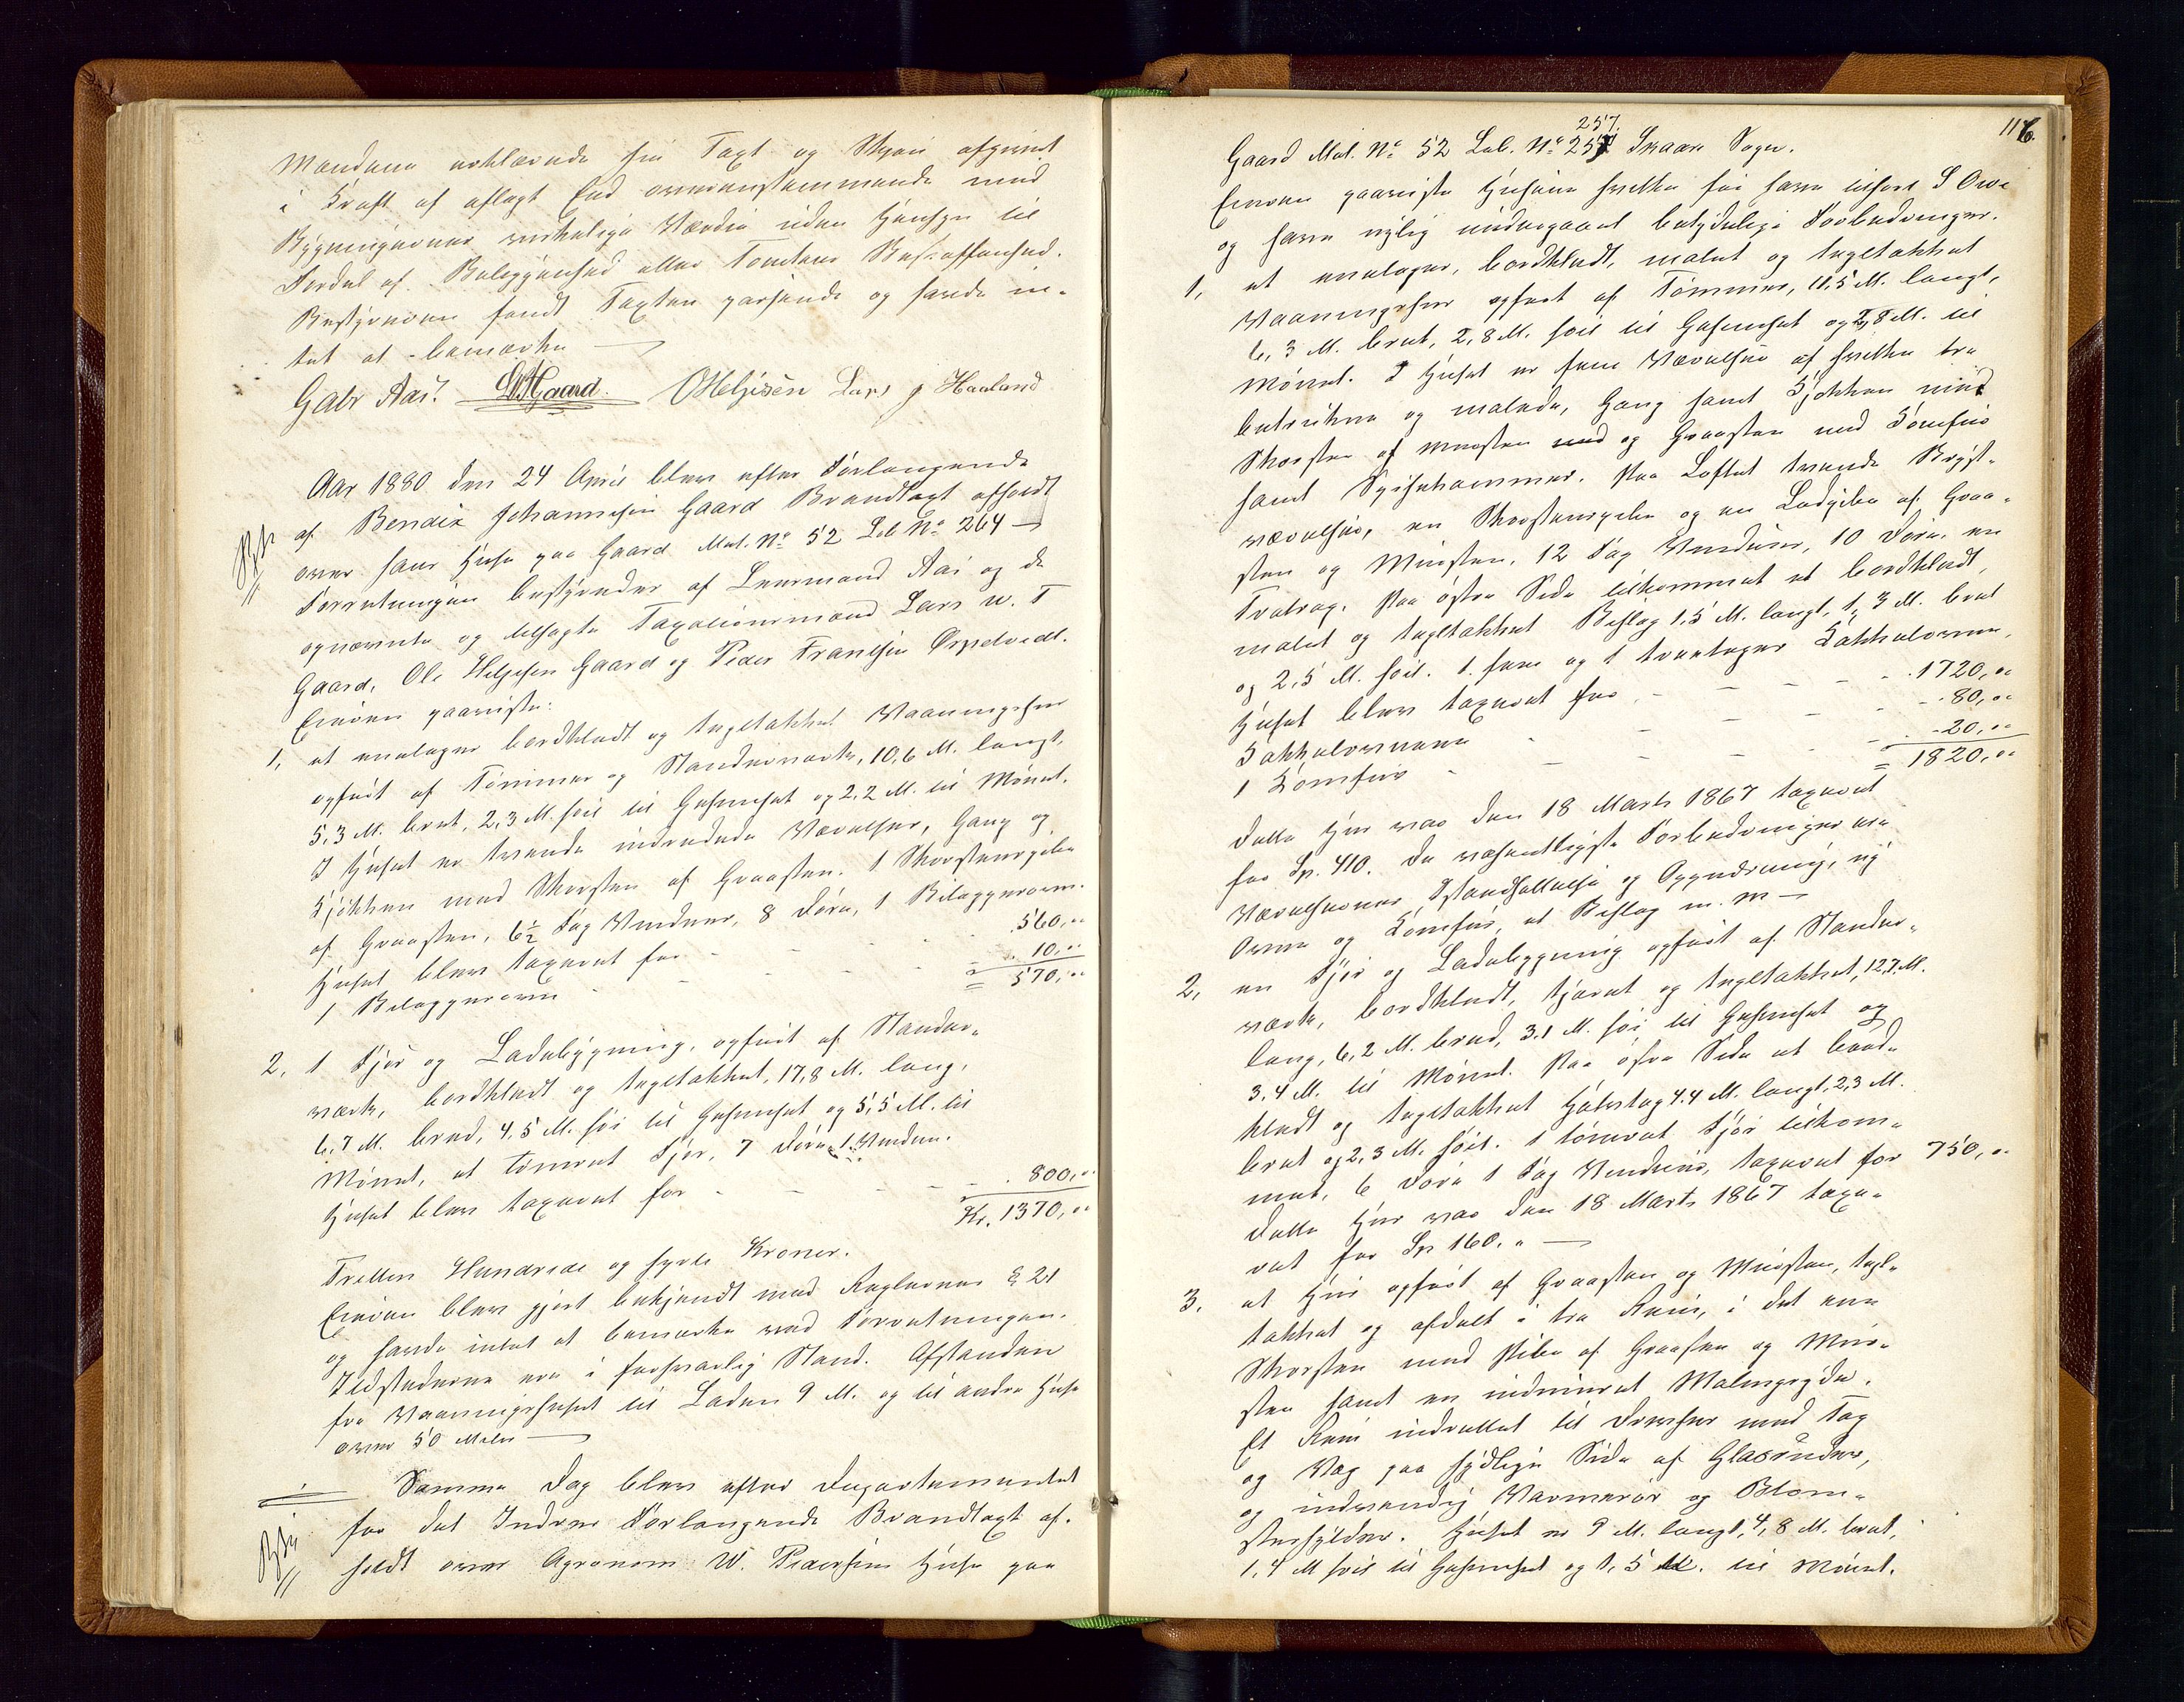 Mændene erklærede sin Taxt og Skjøn afgivet
i Kraft af aflagt Eed overensstemmende med
Bygningernes virkelige Værdie uden Hensyn til
Fordel af Beliggenhed eller Tomtens Beskaffenhed.
Bestyreren fandt Taxten passende og havde in-
tet at bemærke —
Gabr Aas. Gaard. O Heljesen Lars J Haaland
Aar 1880 den 24 April blev efter Forlangende
af Bendix Johannesen Gaard Brandtaxt afholdt
over hans Huse paa Gaard Mat. No 52 Lob No 264 —
Forretningen bestyredes af Lensmand Aas og de
opnævnte og tilsagte Taxationsmænd Lars W. T
Gaard, Ole Heljesen Gaard og Peder Frantsen Ørpetvedt.
Eieren paaviste:
1, et enetages bordklædt og tegltækket Vaaningshus
opført af Tømmer og Stenderværk, 10,6 M. langt,
5,3 M. bredt, 2,3 M. høit til Gesimset og 2,2 M. til Mønet.
I Huset er tvende indredede Værelser, Gang og
Kjøkken med Skorsten af Graasten. 1 Skorstenspibe
af Graasten, 6½ Fag Vinduer, 8 Døre, 1 Bilæggerovn.
Huset blev taxeret for - - 560,00
1 Bilæggerovn - - - 10.00
= 570,00
2, 1 Fjøs og Ladebygning, opført af Stender-
værk, bordklædt og tegltækket, 17,8 M. lang,
6,7 M. bred, 4,5 M. høi til Gesimset og 5,5 M. til
Mønet, et tømret Fjøs, 7 Døre, 1 Vindue.
Huset blev taxeret for - - - 800,00
Kr. 1370,00
Tretten Hundrede og sytti Kroner.
Eieren blev gjort bekjendt med Reglernes § 21
og havde intet at bemærke ved Forretningen.
Ildstederne ere i forsvarlig Stand. Afstanden
fra Vaaningshuset til Laden 9 M. og til andre Huse
over 50 Meter —
Samme Dag blev efter Departementet
for det Indres Forlangende Brandtaxt af-
holdt over Agronom W. Pedersens Huse paa
116.
257.
Gaard Mat. No 52 Lob. No 257 Skaare Sogn.
Eieren paaviste Husene hvilke før have tilhørt S Owe
og have nylig undergaaet betydelige Forbedringer.
1, et enetages, bordklædt, malet og tegltækket
Vaaningshus opført af Tømmer, 11,5 M. langt,
6,3 M. bredt, 2,8 M. høit til Gesimset og 2,8 M. til
Mønet. I Huset er fem Værelser af hvilke tre
betrukne og malede, Gang samt Kjøkken med
Skorsten af Mursten og Graasten med Komfur
samt Spisekammer. Paa Loftet tvende Kvist-
værelser, en Skorstenspibe og en Ladpibe af Graa-
sten og Mursten, 12 Fag Vinduer, 10 Døre, en
Tretrap. Paa østre Side tilkommet et bordklædt,
malet og tegltækket Bislag 1,5 M. langt, 1,3 M. bredt
og 2,5 M. høit. 1 fem og 1 treetages Kakkelovne.
Huset blev taxeret for - - - - 1720,00
Kakkelovnene - - - - 80,00
1 Komfur - - - - 20,00
= 1820,00
Dette Hus var den 18 Marts 1867 taxeret
for Sp. 410. De væsentligste Forbedringer ere
Værelsernes Istandsættelse og Oppudsning, ny
Ovne og Komfur, et Bislag m. m —
2, en Fjøs og Ladebygning opført af Stender-
værk, bordklædt, tjæret og tegltækket, 12,7 M.
lang, 6,2 M. bred, 3,1 M. høi til Gesimset og
3,4 M. til Mønet. Paa østre Side et bord-
klædt og tegltækket Halvtag 4,4 M. langt, 2,3 M.
bredt og 2,3 M. høit. 1 tømret Fjøs tilkom-
met, 6 Døre 1 Fag Vinduer, taxeret for 750,00
Dette Hus var den 18 Marts 1867 taxe-
ret for Sp 160. —
3. et Hus opført af Graasten og Mursten, tegl-
tækket og afdelt i tre Rum, i det ene
Skorsten med Pibe af Graasten og Mur-
sten samt en indmuret Malmgryde.
Et Rum indrettet til Drivhus med Tag
og Væg paa sydlige Side af Glasruder,
og indvendig Varmerør og Blom-
sterhylder. Huset er 9 M. langt, 4,8 M. bredt,
1,4 M høit til Gesimset og 1,5 M. til Mønet.